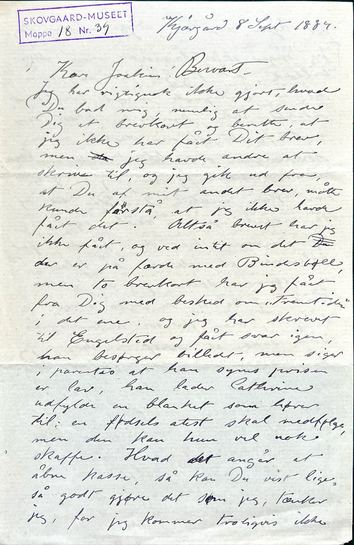 SKOVGAARD-MUSEET
Mappe 18 Nr. 34
Kjøgård 8 Sept 1884.
Kære Joakim! Bevares
Jeg har rigtignok ikke gjort, hvad
Du bad mig, nemlig at sende
Dig et brevkort og berette, at
jeg ikke har fået Dit brev,
men jeg havde andre at
skrive til, og jeg gik ud fra,
at Du af mit andet brev, måtte
kunde forstå, at jeg ikke havde
fået det. Altså brevet har jeg
ikke fået, og ved intet om det
der er på færde med Bindsbøll,
men to brevkort har jeg fået
fra Dig med besked om
i det ene, og jeg har skrevet
til Engelsted og fået svar igen,
han besørger billedet, men siger
i parentes at han synes prisen
er lav, han lader Cathrine
udfylde en blanket som hører
til: en fødselsatest skal medfølge,
men den kan hun vel nok
skaffe. Hvad det angår at
åbne kasse, så kan Du vist lige
så godt gjøre det som jeg, tænker
jeg, for jeg kommer troligvis ikke